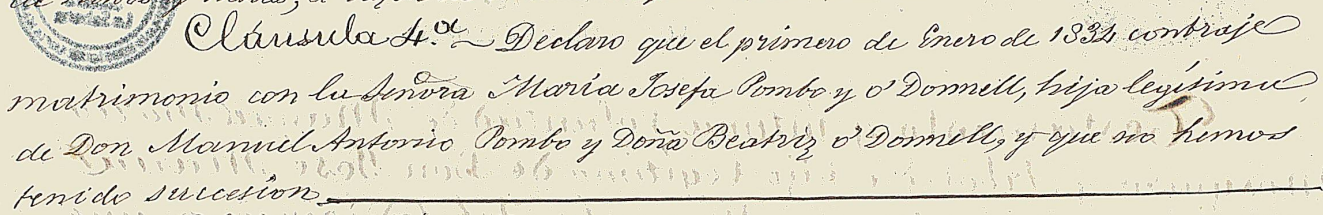 Cláusula 4.a — Declaro que el primero de Enero de 1834 contraje
matrimonio con la Señora María Josefa Pombo y O'Donnell, hija legítima
de Don Manuel Antonio Pombo y Doña Beatriz O'Donnell, y que no hemos
tenido sucesion